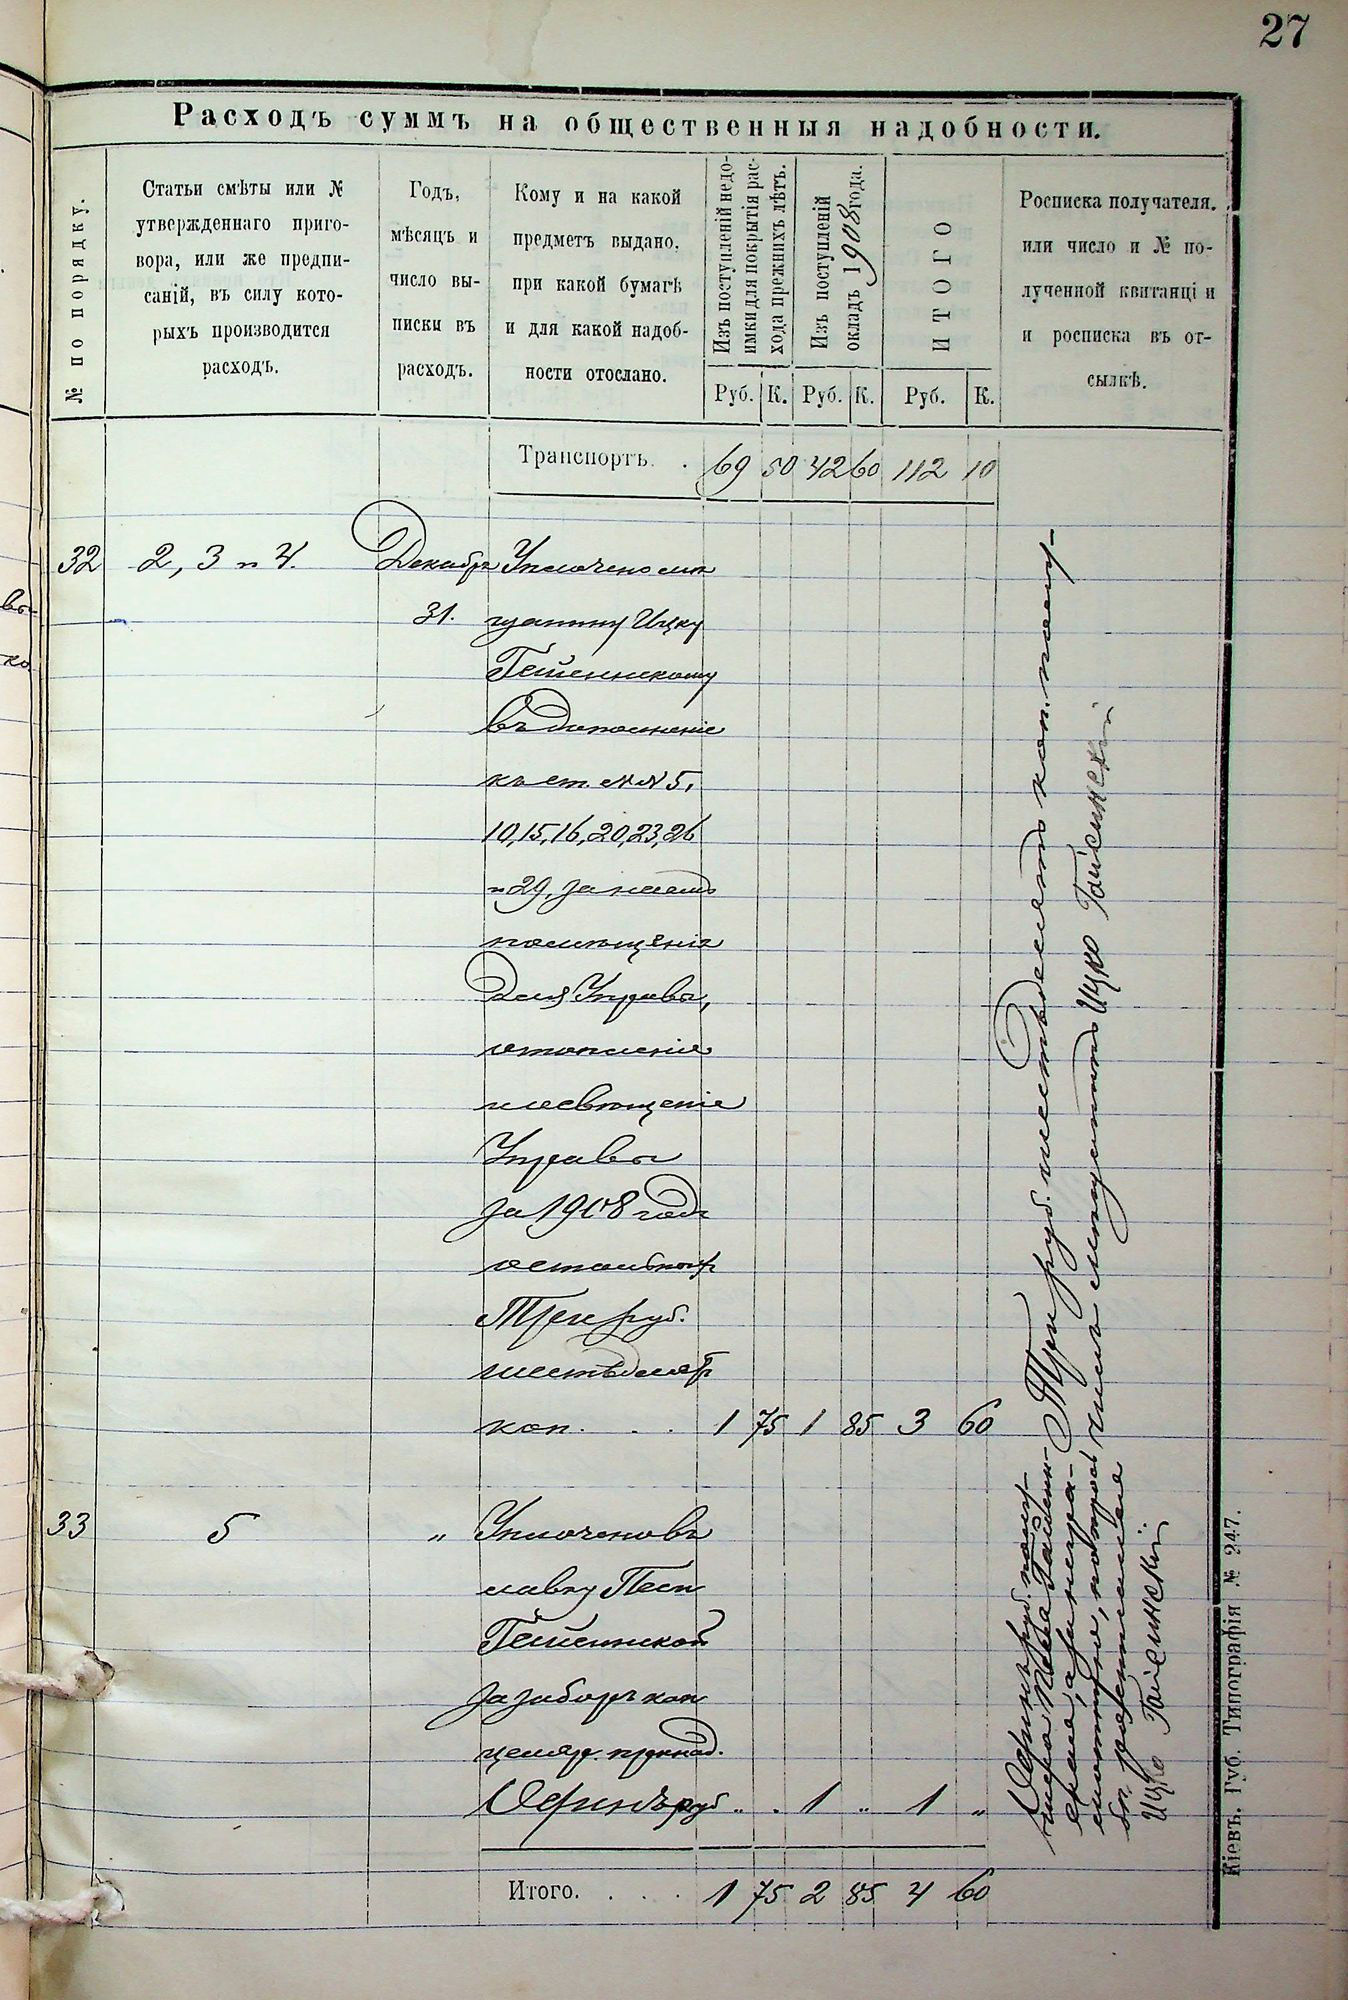 27
Расходъ суммъ на общественныя надобности.
№ по порядку.
Статьи смѣты или №
утвержденнаго приго-
вора, или же предпи-
саній, въ силу кото-
рыхъ производится
расходъ.
Годъ,
мѣсяцъ и
число вы-
писки въ
расходъ.
Кому и на какой
предметъ выдано,
при какой бумагѣ
и для какой надоб-
ности отослано.
Изъ поступленій недо-
имки для покрытія рас-
хода прежнихъ лѣтъ.
Изъ поступленій
окладъ 1908 года.
ИТОГО
Росписка получателя,
или число и № по-
лученной квитанціи
и росписка въ от-
сылкѣ.
Руб. К. Руб. К. Руб. К.
Транспортъ. . 69 50 42 60 112 10
32 2, 3 и 4. Декабря Уплочено мѣ
31. щанину Ицку
Гейсинскому
въ дополненіе
къ ст. №№ 5,
10, 15, 16, 20, 23, 26
и 29, за наемъ
помѣщенія
для Управы,
отопленіе
и освѣщеніе
Управы
за 1908 годъ
остальныя
Три руб.
шестьдесятъ
коп. . . . 1 75 1 85 3 60
Три руб. шестьдесятъ коп. полу-
чилъ мѣщанинъ Ицко Гайсинскій
33 5 " Уплочено въ
лавку Песи
Гейсинской
за заборъ кан
целяр. принад.
Одинъ руб " . 1 " 1 "
Одинъ руб. полу-
чила Песя Гайсин-
ская, а за негра-
мотную, по просьбѣ
ея росписался
Ицко Гайсинскій
Итого. . . . . 1 75 2 85 4 60
Кіевъ. Губ. Типографія № 247.